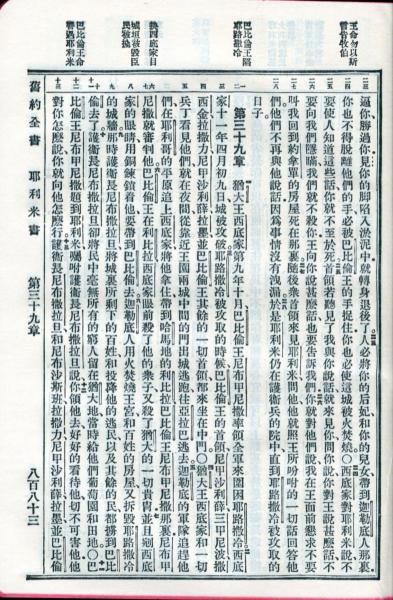 王命勿以斯
言告牧伯
巴比倫王陷
耶路撒冷
抉西底家目
城垣被毀臣
民被擄
巴比倫王命
善遇耶利米
逼你勝過你見你的脚陷入淤泥中就轉身退後了人必將你的后妃和你的兒女帶到迦勒底人那裏
你也不得脫離他們的手必被巴比倫王的手捉住你也必使這城被火焚燒〇西底家對耶利米說不
要使人知道這些話你就不至於死首領若聽見了我與你說話就來見你問你說你對王說甚麼話不
要向我們隱瞞我們就不殺你王向你說甚麼話也要告訴我們你就對他們說我在王面前懇求不要
叫我回到約拿單的房屋死在那裏隨後衆首領來見耶利米問他他就照王所吩咐的一切話回答他
們他們不再與他說話因爲事情沒有洩漏於是耶利米仍在護衛兵的院中直到耶路撒冷被攻取的
日子
第三十九章 猶大王西底家第九年十月巴比倫王尼布甲尼撒率領全軍來圍困耶路撒冷西底
家十一年四月初九日城被攻破耶路撒冷被攻取的時候巴比倫王的首領尼甲沙利薛三甲尼波撒
西金拉撒力尼甲沙利薛拉墨並巴比倫王其餘的一切首領都來坐在中門〇猶大王西底家和一切
兵丁看見他們就在夜間從靠近王園兩城中間的門出城逃跑往亞拉巴逃去迦勒底的軍隊追趕他
們在耶利哥的平原追上西底家將他拿住帶到哈馬地的利比拉巴比倫王尼布甲尼撒那裏尼布甲
尼撒就審判他巴比倫王在利比拉西底家眼前殺了他的衆子又殺了猶大的一切貴冑並且剜西底
家的眼睛用銅鍊鎖着他要帶到巴比倫去迦勒底人用火焚燒王宮和百姓的房屋又拆毀耶路撒冷
的城牆那時護衛長尼布撒拉旦將城裏所剩下的百姓和投降他的逃民以及其餘的民都擄到巴比
倫去了護衛長尼布撒拉旦卻將民中毫無所有的窮人留在猶大地當時給他們葡萄園和田地〇巴
比倫王尼布甲尼撒題到耶利米囑咐護衛長尼布撒拉旦說你領他去好好的看待他切不可害他他
對你怎麼說你就向他怎麼行護衛長尼布撒拉旦和尼布沙斯班拉撒力尼甲沙利薛拉墨並巴比倫
舊約全書 耶利米書 第三十九章 八百八十三